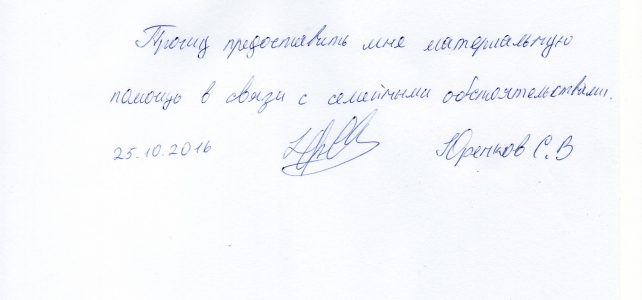 Прошу предоставить мне материальную
помощь в связи с семейными обстоятельствами.
25.10.2016 Юренков С.В